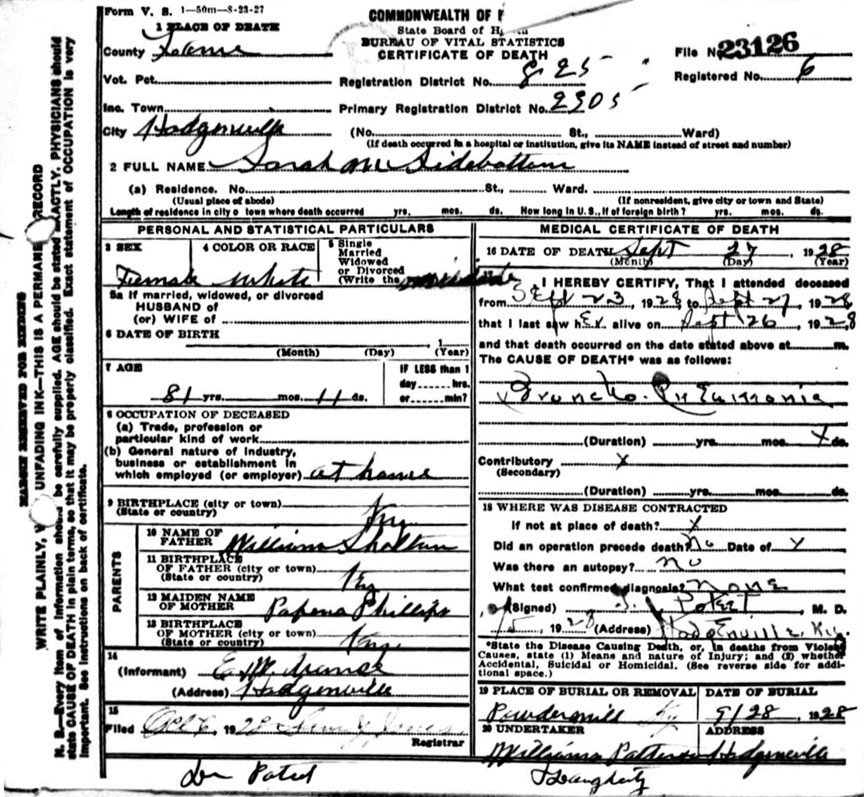 Form V. S. 1—50m—8-23-27
COMMONWEALTH OF
1 PLACE OF DEATH
State Board of H
BUREAU OF VITAL STATISTICS
CERTIFICATE OF DEATH
County Larue
File No. 23126
Registered No. 6
Vot. Pct.
Registration District No. 825
Inc. Town
Primary Registration District No. 2905
City Hodgenville (No. St., Ward)
(If death occurred in a hospital or institution, give its NAME instead of street and number)
2 FULL NAME Sarah M Sidebottom
(a) Residence. No. St., Ward.
(Usual place of abode) (If nonresident, give city or town and State)
Length of residence in city o town where death occurred yrs. mos. ds. How long in U.S., if of foreign birth? yrs. mos. ds.
PERSONAL AND STATISTICAL PARTICULARS
3 SEX
Female
4 COLOR OR RACE
White
5 Single
Married
Widowed
or Divorced
(Write the
5a If married, widowed, or divorced
HUSBAND of
(or) WIFE of
6 DATE OF BIRTH
1
(Month) (Day) (Year)
7 AGE
81 yrs. mos. 11 ds.
IF LESS than 1
day hrs.
or min?
8 OCCUPATION OF DECEASED
(a) Trade, profession or
particular kind of work
(b) General nature of industry,
business or establishment in
which employed (or employer) at home
9 BIRTHPLACE (city or town)
(State or country) Ky.
PARENTS
10 NAME OF
FATHER William
11 BIRTHPLACE
OF FATHER (city or town)
(State or country) Ky
12 MAIDEN NAME
OF MOTHER Phillips
13 BIRTHPLACE
OF MOTHER (city or town)
(State or country) Ky.
14
(Informant) E. M.
(Address) Hodgenville
15
Filed 192
Registrar
MEDICAL CERTIFICATE OF DEATH
16 DATE OF DEATH Sept 27, 1928
(Month) (Day) (Year)
I HEREBY CERTIFY, That I attended deceased
from Sept 23, 1928 to Sept 27, 1928
that I last saw her alive on Sept 26, 1928
and that death occurred on the date stated above at m.
The CAUSE OF DEATH* was as follows:
Broncho-Pneumonia
(Duration) yrs. mos. X ds.
Contributory X
(Secondary)
(Duration) yrs. mos. ds.
18 WHERE WAS DISEASE CONTRACTED
If not at place of death? X
Did an operation precede death? No Date of X
Was there an autopsy? No
What test confirmed diagnosis? None
(Signed) M. D.
1928 (Address) Hodgenville, Ky.
*State the Disease Causing Death, or, in deaths from Violent
Causes, state (1) Means and nature of Injury; and (2) whether
Accidental, Suicidal or Homicidal. (See reverse side for addi-
tional space.)
19 PLACE OF BURIAL OR REMOVAL
Powdermill Ky
DATE OF BURIAL
9/28, 1928
20 UNDERTAKER
ADDRESS
Hodgenville
MARGIN RESERVED FOR BINDING
WRITE PLAINLY, W UNFADING INK—THIS IS A PERMANE RECORD
N. B.—Every item of information should be carefully supplied. AGE should be stated EXACTLY. PHYSICIANS should
state CAUSE OF DEATH in plain terms, so that it may be properly classified. Exact statement of OCCUPATION is very
important. See instructions on back of certificate.